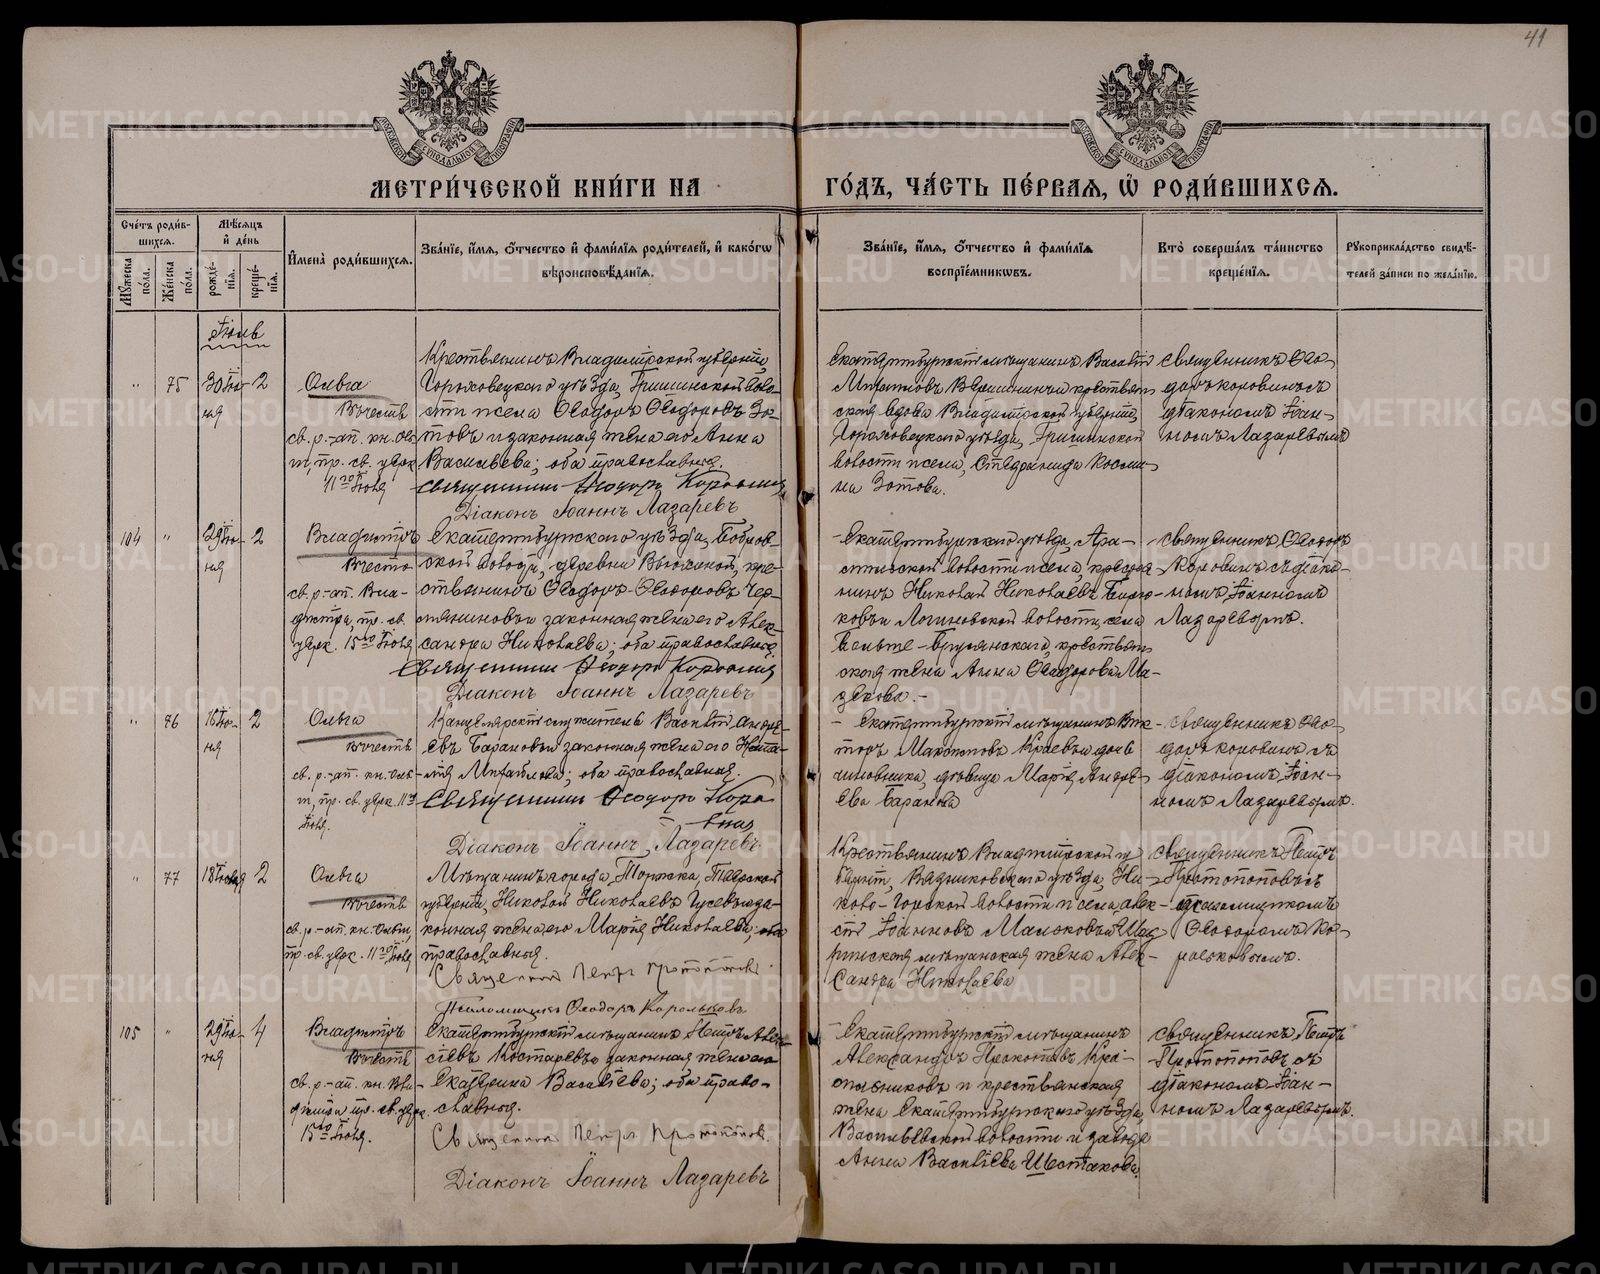 41
МЕТРИ́ЧЕСКОЙ КНИ́ГИ НА
ГО́ДЪ, ЧА́СТЬ ПЕ́РВАЯ, Ѡ҆ РОДИ́ВШИХСЯ.
Сче́тъ роди́вшихся.
Му́жеска по́ла.
Же́нска по́ла.
Мѣ́сяцъ и҆ де́нь
рожде́нїя.
креще́нїя.
И҆мена̀ роди́вшихся.
Зва́нїе, и҆́мя, ѻ҆́тчество и҆ фами́лїя роди́телей, и҆ како́гѡ вѣроисповѣ́данїя.
Зва́нїе, и҆́мя, ѻ҆́тчество и҆ фами́лїя воспрїе́мниковъ.
Кто̀ соверша́лъ та́инство креще́нїя.
Рꙋкоприкла́дство свидѣ́телей за́писи по жела́нїю.
Іюль
" 75 30 Іюня 2
Ольга
въ честь
св. р.-ап. кн. Оль
ги, пр. св. церк.
11го Іюля
Крестьянинъ Владимірской губерніи,
Гороховецкаго уѣзда, Гришинской воло-
сти и села Ѳеодоръ Ѳеодоровъ Зо-
товъ и законная жена его Анна
Васильева; оба православные.
Священникъ Ѳеодоръ Коровинъ
Діаконъ Іоаннъ Лазаревъ
Екатеринбургскій мѣщанинъ Василій
Вяшинъ и крестьян
ская вдова Владимірской губерніи,
Гороховецкаго уѣзда, Гришинской
волости и села, Стефанида Косми-
на Зотова.
Священникъ Ѳео-
доръ Коровинъ съ
діакономъ Іоан-
номъ Лазаревымъ
104 " 29 Іюня 2
Владиміръ
въ честь
св. р.-ап. Вла-
диміра, пр. св.
церк. 15го Іюля
Екатеринбургскаго уѣзда, Бобров-
ской волости, деревни Вьюхиной, кре-
стьянинъ Ѳеодоръ Ѳеодоровъ Чер-
и законная жена его Алек-
сандра Николаева; оба православные.
Священникъ Ѳеодоръ Коровинъ
Діаконъ Іоаннъ Лазаревъ
Екатеринбургскаго уѣзда, Ара-
мильской волости и села, кресть-
янинъ Николай Николаевъ
ковъ и Логиновской волости, села
Больше-Брусянскаго, крестьян
ская жена Анна Ѳеодорова Ма-
зѣкова.
Священникъ Ѳеодоръ
Коровинъ съ діако-
номъ Іоанномъ
Лазаревымъ.
" 76 16 Іюня 2
Ольга
въ честь
св. р.-ап. кн. Оль
ги, пр. св. церк. 11го
Іюля.
Канцелярскій служитель Василій Андре-
евъ Барановъ и законная жена его Ната-
лія Михайлова; оба православные.
Священникъ Ѳеодоръ Коро
винъ
Діаконъ Іоаннъ Лазаревъ
Екатеринбургскій мѣщанинъ Вик-
торъ Краевъ и дочь
чиновника, дѣвица Марія Андре-
ева Баранова
Священникъ Ѳео-
доръ Коровинъ съ
діакономъ Іоан-
номъ Лазаревымъ.
" 77 18 Іюня 2
Ольга
въ честь
св. р.-ап. кн. Ольги,
пр. св. церк. 11го Іюля
Мѣщанинъ города Торжка, Тверской
губерніи, Николай Николаевъ Гусевъ и за-
конная жена его Марія Николаева; оба
православные.
Священникъ Петръ Протопоповъ
Псаломщикъ Ѳеодоръ Корольковъ
Крестьянинъ Владимірской гу
берніи, Вязниковскаго уѣзда, Ни-
коло-Горской волости и села, Алек-
сѣй Іоанновъ Малковъ и Шад
ринская мѣщанская жена Алек-
сандра Николаева
Священникъ Петръ
Протопоповъ съ
псаломщикомъ
Ѳеодоромъ Ко-
рольковымъ.
105 " 29 Іюня 4
Владиміръ
въ честь
св. р.-ап. кн. Вла-
диміра пр. св. церк.
15го Іюля.
Екатеринбургскій мѣщанинъ Петръ Алек-
сѣевъ Костаревъ и законная жена его
Екатерина Васильева; оба право-
славные.
Священникъ Петръ Протопоповъ.
Діаконъ Іоаннъ Лазаревъ
Екатеринбургскій мѣщанинъ
Александръ Кра-
сильниковъ и крестьянская
жена Екатеринбургскаго уѣзда,
Васильевской волости и завода
Анна Васильева Шестакова.
Священникъ Петръ
Протопоповъ съ
діакономъ Іоан-
номъ Лазаревымъ.
METRIKI.GASO-URAL.RU